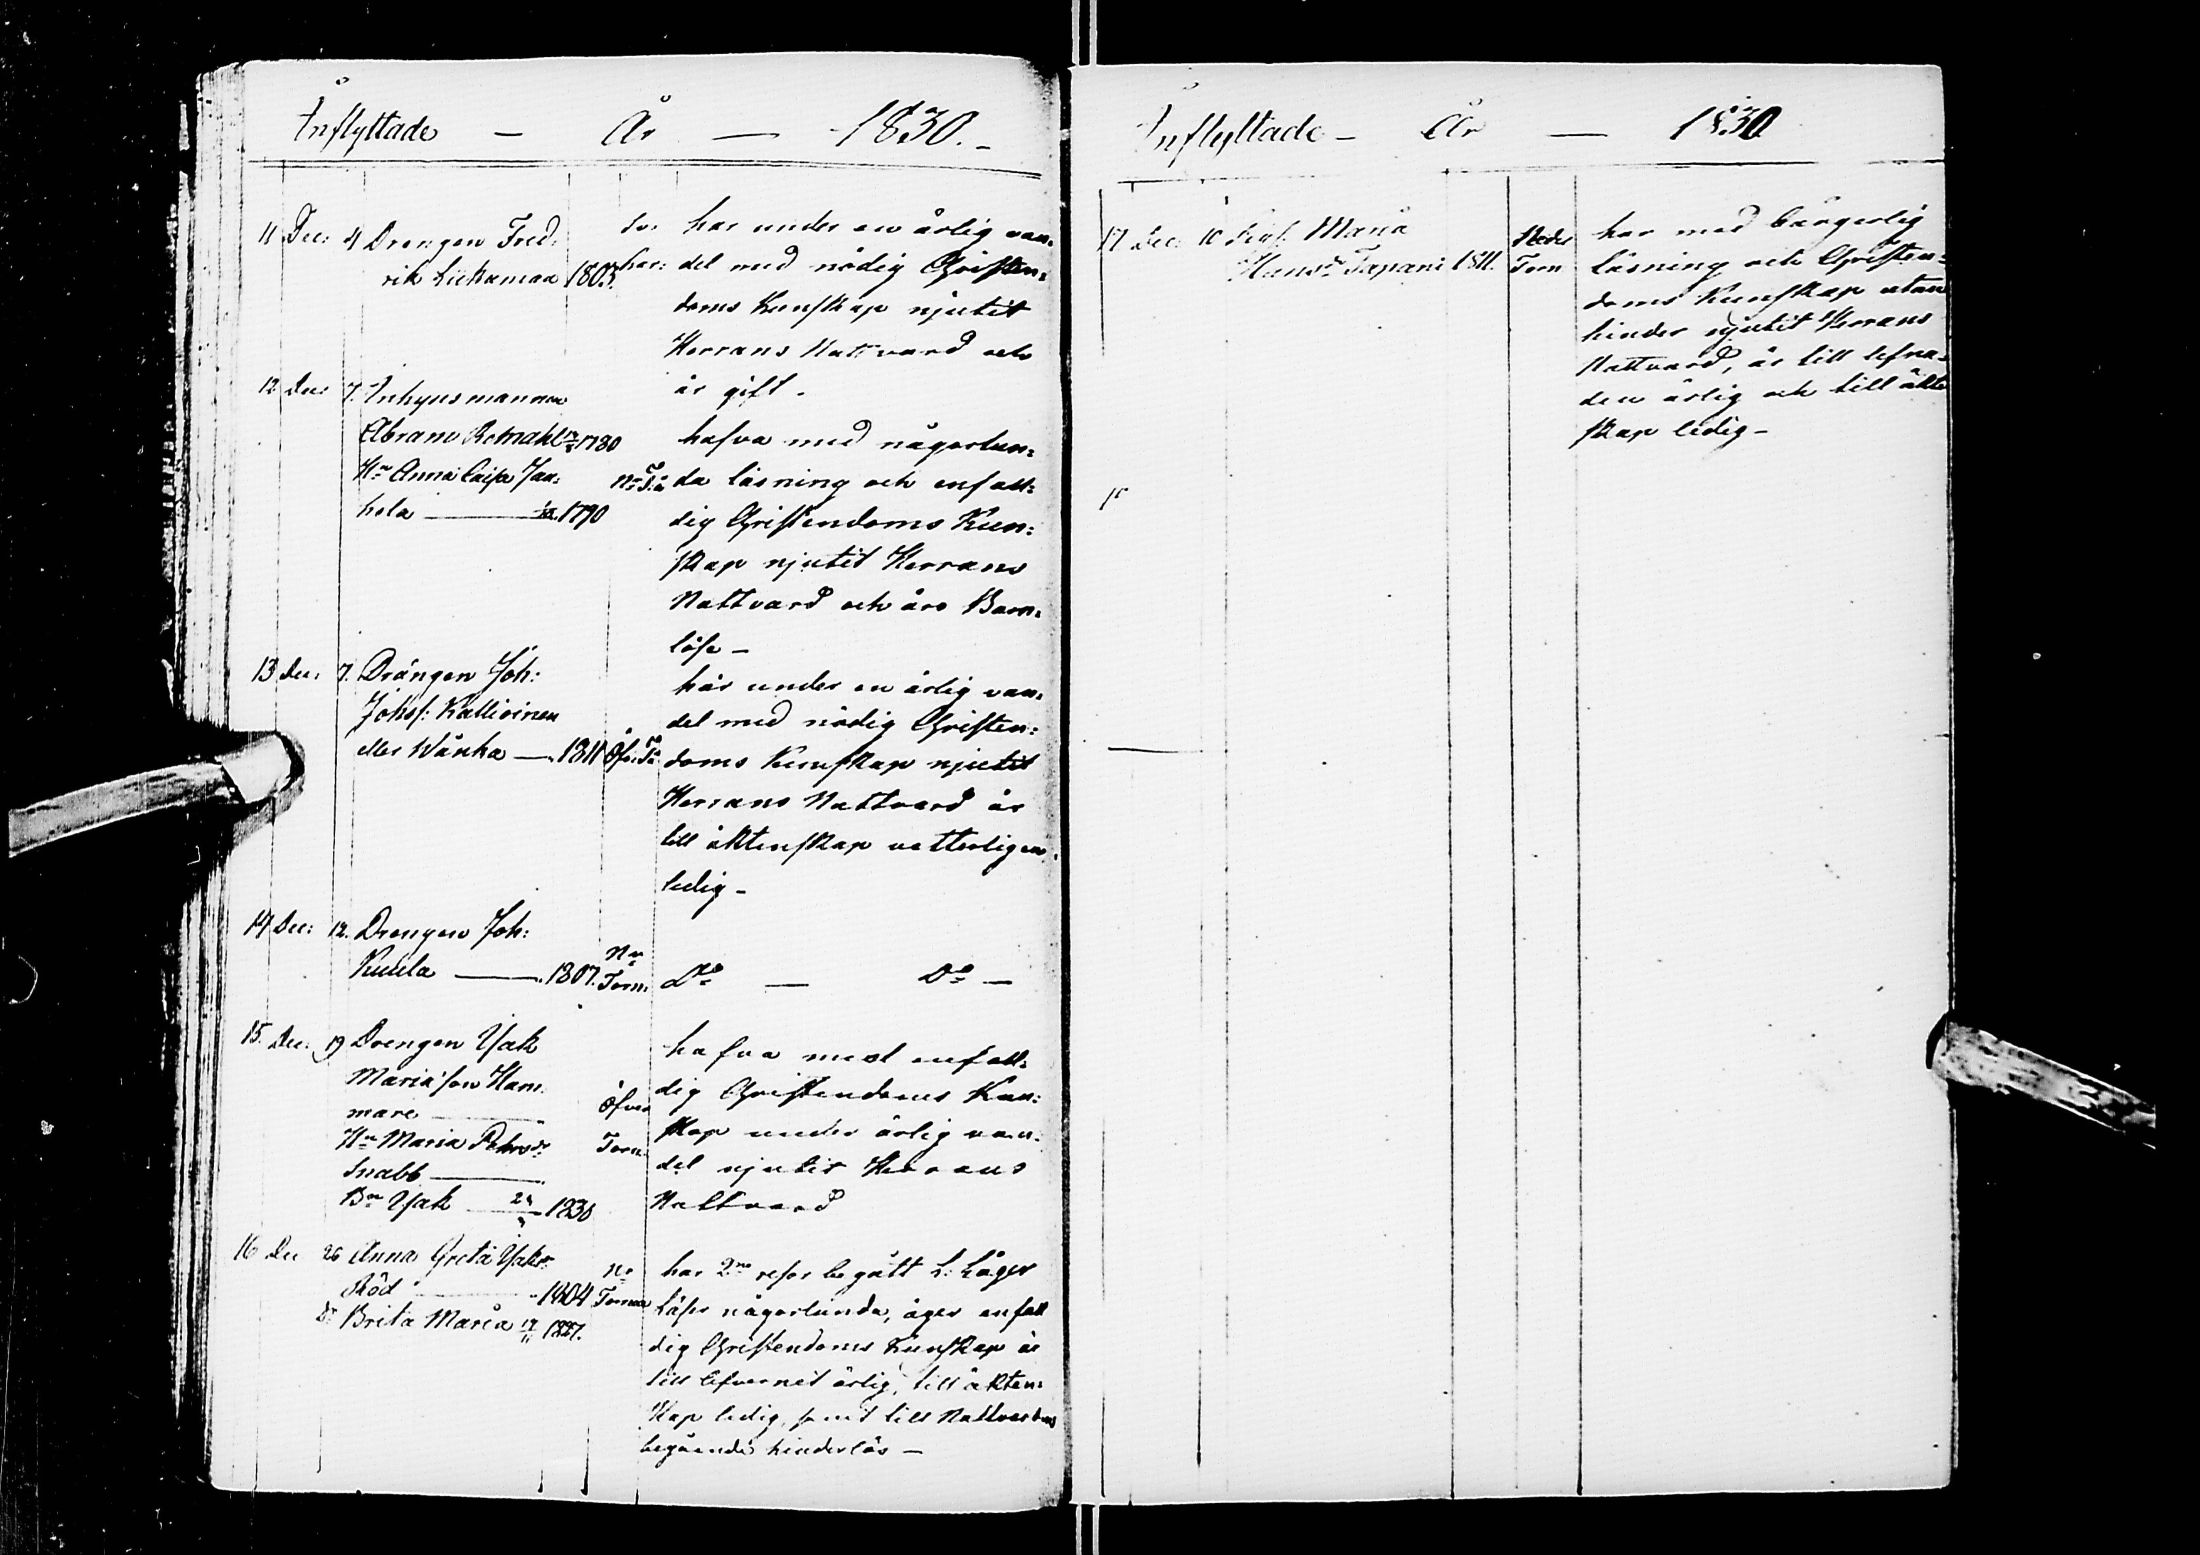 Inflyttade — År — 1830. –
11 Dec: 4 Drengen Fred:
rik Liekamaa 1803.
har under en ärlig van:
del med nödig Christen:
doms Kunskap njutit
Herrans Nattvard och
är gift.
12 Dec 7. Inhysmannen
Abram 1780
Hu Anna Caisa Jaa:
kola — 1790
Nr Tå
hafva med någorlun:
da läsning och enfall:
dig Christendoms Kun:
skap njutit Herrans
Nattvard och äro Barn:
löse –
13 Dec: 7. Drängen Joh:
Johsf: Kallioinen
eller Wänka — 1811 Öfr: Tå
här under en ärlig van:
del med nödig Christen:
doms Kunskap njutit
Herrans Nattvard är
till äktenskap vetterligen
ledig –
14 Dec: 12. Drengen Joh:
Kuula — 1807. Nr Torn:
Do — Do —
15. Dec: 19 Drengen Isak
Mariäson Ham:
mare
Hu Maria Pehrsdr
Snabb —
Bn Isak — 1830
Öfver
Torn:
hafva med enfall:
dig Christendoms Kun:
skap under ärlig van:
del njutit Herrans
Nattvard
16 Dec 26 Anna Greta Isaksdr
Röd — 1804 Nr Tornea
Dr Brita Maria 19/11 1827.
har 2ne resor begått L: Läger
Läser någorlunda, äger enfall
dig Christendoms Kunskap är
till lefvernet ärlig, till äkten:
skap ledig, samt till Nattvardens
begående hinderlös —
Inflyttade – År — 1830
17 Dec: 10 Maria
Hansdr Tapani 1811. Neder
Torn
har med bärgerlig
läsning och Christen:
doms Kunskap utan
hinder njutit Herrans
Nattvard, är till lefna:
den ärlig och till äkten
skap ledig –